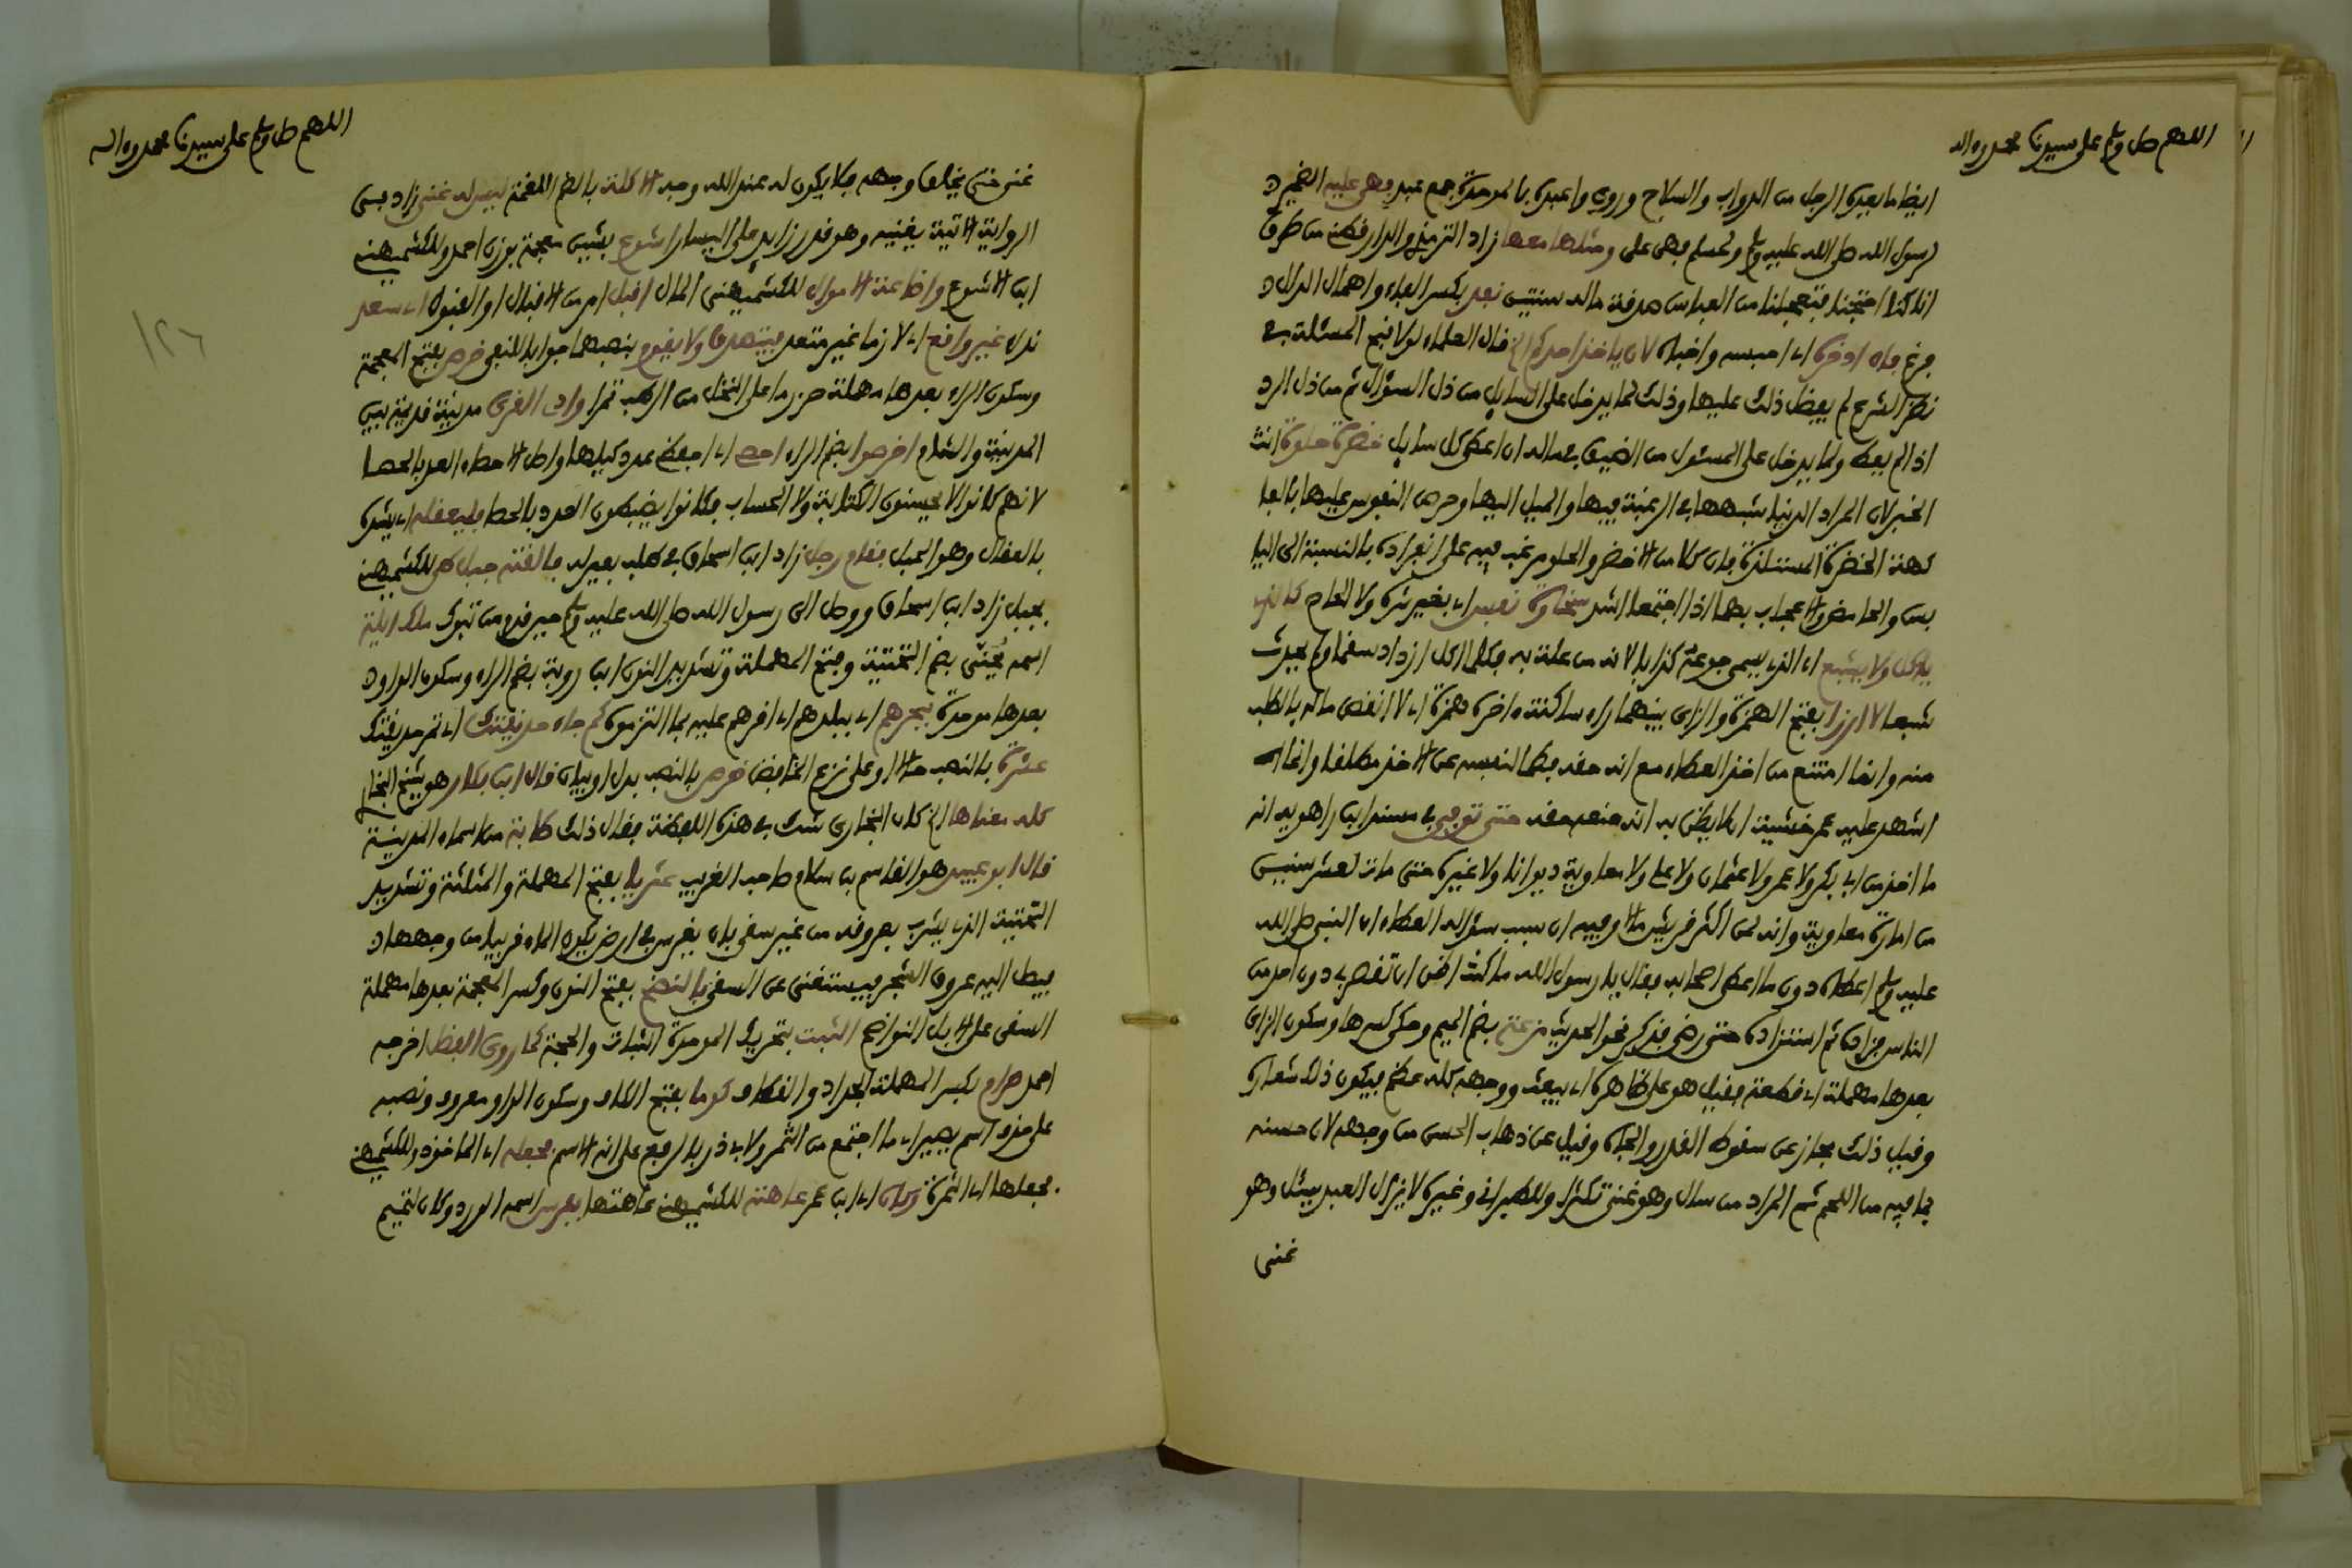 اللهم صل وسلم على سيدنا محمد وءاله
ايضا ما يعده الرجل من الدواب والسلاح وروي واعبده بالموحدة جمع عبد فهي عليه الضمير
لرسول الله صلى الله عليه وسلم ولمسلم فهي على ومثلها معها زاد الترمذي والدارقطني من طرق
انا كنا احتجنا فتعجلنا من العباس صدقة ماله سنتين نفد بكسر الفاء واهمال الدال
فرغ فلن ادخره اي احبسه واخبأه لان ياخذ احدكم الخ قال العلماء لولا قبح المسئلة في
نظر الشرع لم يفضل ذلك عليها وذلك لما يدخل على السايل من ذل السؤال ثم من ذل الرد
اذا لم يعط ولما يدخل على المسئول من الضيق في ماله ان اعطى كل سايل خضرة حلوة انث
الخبر لان المراد الدنيا شبهها في الرغبة فيها والميل اليها وحرص النفوس عليها بالفا
كهة الخضرة المستلذة فان كلا من الاخضر والحلو مرغب فيه على انفراده بالنسبة الى اليا
بس والحامض والاعجاب بهما اذا اجتمعا اشد سخاوة نفس اي بغير شره ولا الحاح كالذي
ياكل ولا يشبع اي الذي يسمى جوعه كذابا لانه من علة به فكلما اكل ازداد سقما ولم يجد
شبعا لا ارزا بفتح الهمزة والزاي بينهما راء ساكنة ءاخره همزة اي لا انقص ماله بالطلب
منه وانما امتنع من اخذ العطاء مع انه حقه فطما لنفسه عن الاخذ مطلقا وانما
اشهد عليه عمر خشية ان يظن به انه منعه حقه حتى توفي في مسند ابن راهويه انه
ما اخذ من ابي بكر ولا عمر ولا عثمان ولا علي ولا معاوية ديوانا ولا غيره حتى مات لعشر سنين
من امارة معاوية وانه لمن اكثر قريش مالا وفيه ان سبب سؤاله العطاء ان النبي صلى الله
عليه وسلم اعطاه دون ما اعطى اصحابه فقال يا رسول الله ما كنت اظن ان تقصر بي دون احد من
الناس فزاده ثم استزاده حتى رضي فذكر نحو الحديث مزعة بضم الميم وحكي كسرها وسكون الزاي
بعدها مهملة اي قطعة فقيل هو على ظاهره اي يبعث ووجهه كله عظم فيكون ذلك شعاره
وقيل ذلك مجاز عن سقوط القدر والجاه وقيل عن ذهاب الحسن من وجهه لان حسنه
بما فيه من اللحم ثم المراد من سال وهو غني تكثرا وللطبراني وغيره لا يزال العبد يسئل وهو
غني
اللهم صل وسلم على سيدنا محمد وءاله
١٢٦
غني حتى يخلق وجهه فلا يكون له عند الله وجه الاكلة بالضم اللقمة ليس له غنى زاد في
الرواية الاتية يغنيه وهو قدر زايد على اليسار اشوع بشين معجمة بوزن احمد وللكشميهني
ابن الاشوع واضاعة الاموال للكشميهني المال اقبل امر من الاقبال او القبول اي سعد
نداء غير واقع اي لازما غير متعد فيتصدق ولا يقوم بنصبهما جوابا للنفي خرص بفتح المعجمة
وسكون الراء بعدها مهملة حزر ما على النخل من الرطب تمرا وادي القرى مدينة قديمة بين
المدينة والشام اخرصوا بضم الراء احصي اي احفظي عدد كيلها واصل الاحصاء العد بالحصا
لانهم كانوا لا يحسنون الكتابة ولا الحساب فكانوا يضبطون العدد بالحصا فليعقله اي يشده
بالعقال وهو الحبل فقام رجل زاد ابن اسحاق في طلب بعير له فالقته جبل طي للكشميهني
بجبل زاد ابن اسحاق ووصل الى رسول الله صلى الله عليه وسلم حين قدم من تبوك ملك ايلة
اسمه يحنى بضم التحتية وفتح المهملة وتشديد النون ابن روبة بضم الراء وسكون الواو
بعدها موحدة ببحرهم اي ببلدهم اي اقرهم عليه بما التزموه كم جاء حديقتك اي تمر حديقتك
عشرة بالنصب حالا او على نزع الخافض خرص بالنصب بدل او بيان قال ابن بكار هو شيخ البخا
كلمة معناها الخ كان البخاري شك في هذه اللفظة فقال ذلك طابة من اسماء المدينة
قال ابو عبيد هو القاسم بن سلام صاحب الغريب عثريا بفتح المهملة والمثلثة وتشديد
التحتية الذي يشرب بعروقه من غير سقي بان يغرس في ارض يكون الماء قريبا من وجهها
فيصل اليه عروق الشجر فيستغني عن السقي بالنضح بفتح النون وكسر المعجمة بعدها مهملة
السقي على الابل النواضح الثبت بتحريك الموحدة الثبات والحجة كما روى الفضل اخرجه
احمد صرام بكسر المهملة الجداد والقطاف كوما بفتح الكاف وسكون الواو معروف ونصبه
على حذف اسم يصير اي ما اجتمع من الثمر ولابي ذر بالرفع على انه الاسم فجعله اي الماخوذ وللكشميهني
فجعلها اي الثمرة وكان اي ابن عمر عاهته للكشميهني عاهتها بفرس اسمه الورد وكان لتميم